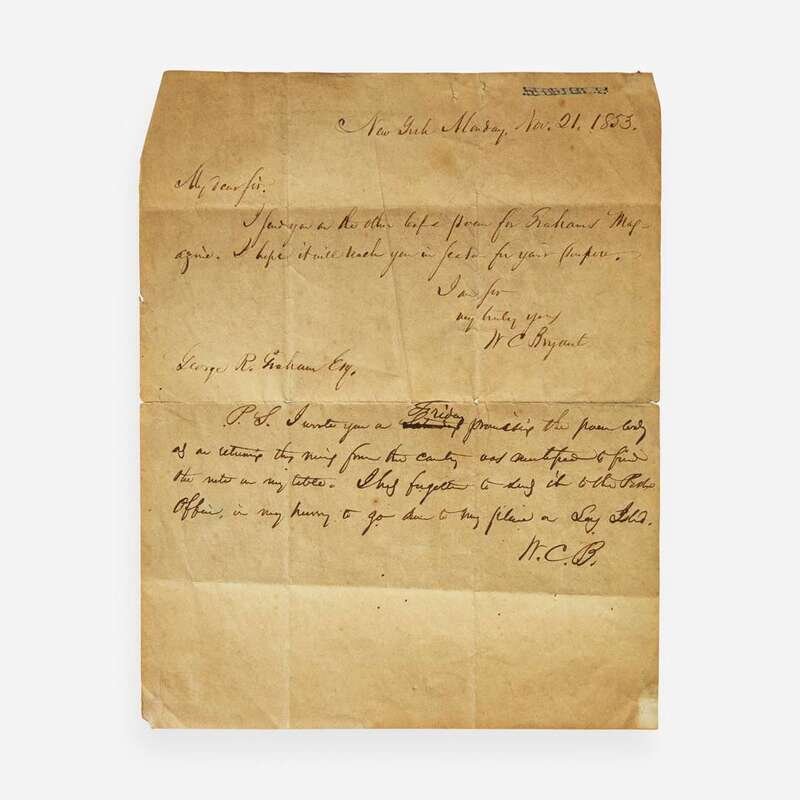 New York Monday, Nov. 21. 1853.
My dear Sir.
I send you on the other leaf a poem for Grahams Mag-
azine. I hope it will reach you in season for your purpose.
I am Sir
very truly yours
W C Bryant
George R. Graham Esq.
P. S. I wrote you on Friday promising the poem today
as on returning this morning from the country was mortified to find
the note on my table. I had forgotten to send it to the Post
Office, in my hurry to go down to my place on Long Isld.
W. C. B.